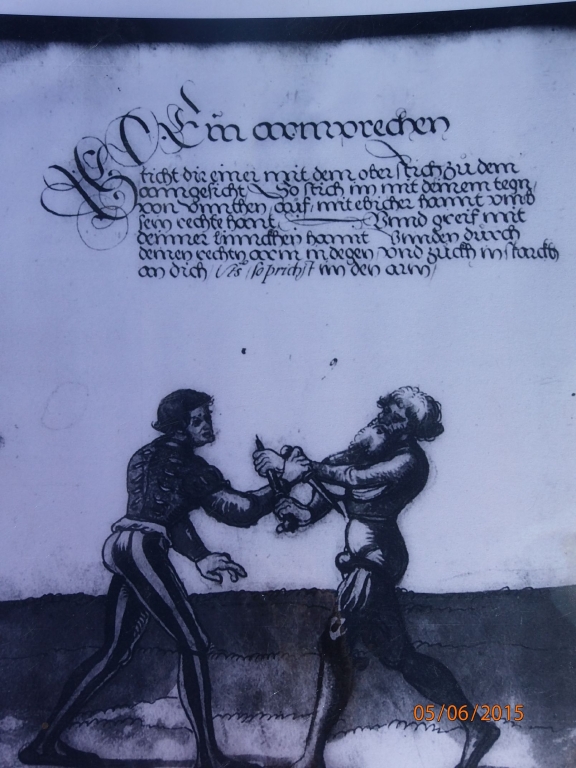 Ein armprechen
Sticht dir einer mit dem ober stich zu dem
anngesicht So stich im mit deinem tegn
von unnthen auf mit ebicher hannt unnd
sein rechte hant Unnd greif mit
deinner linnckhen hannt Unnden durch
deinen rechten arm in degen und zuckh in starckh
an dich so prichst im den arm
05/06/2015